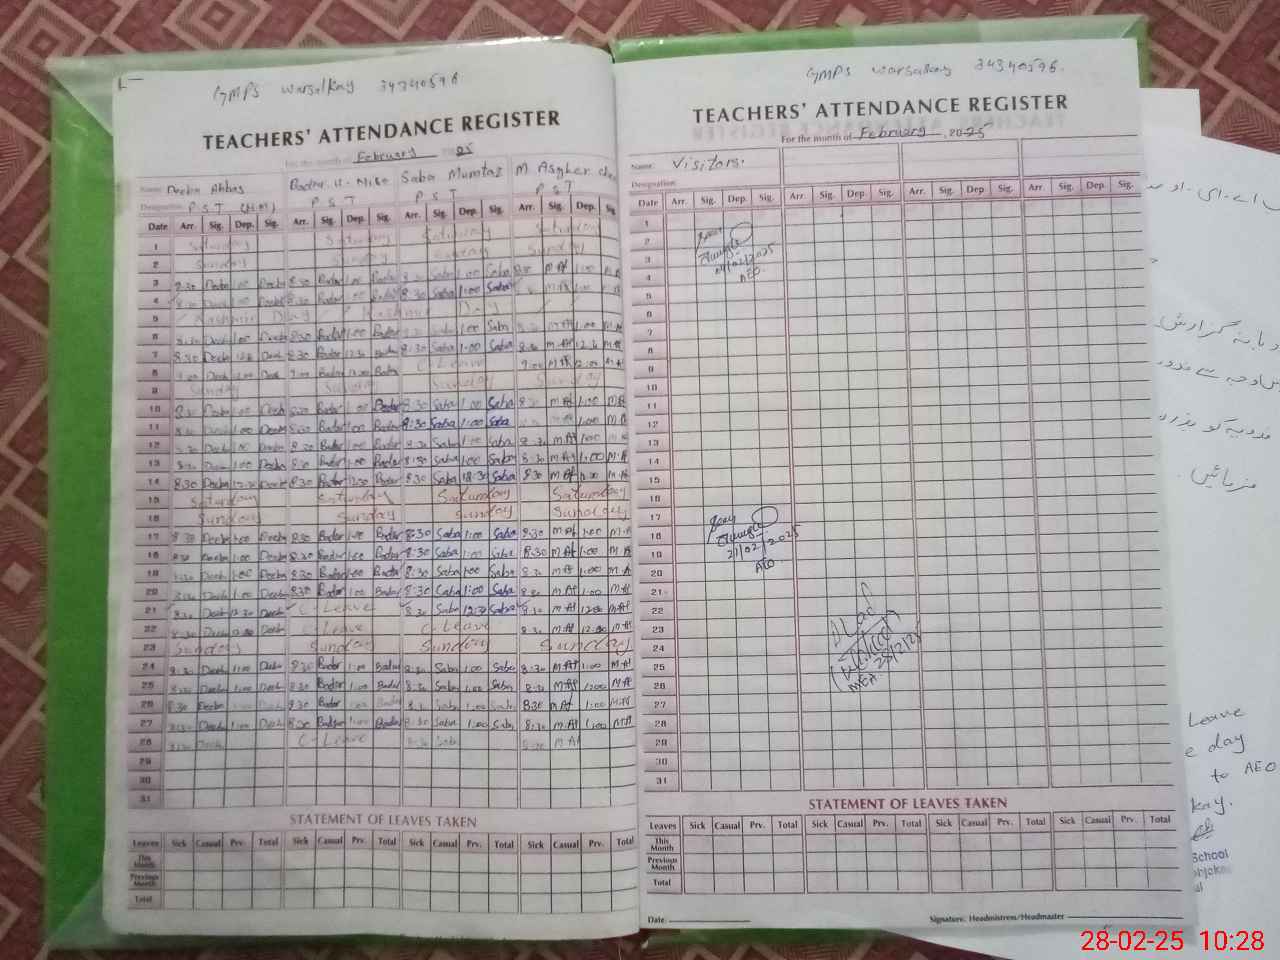 GMPS Warsalkay 34340596
TEACHERS' ATTENDANCE REGISTER
For the month of February 2025
Name Deeba Abbas Badar-u-Nisa Saba Mumtaz M Asgher
Designation P S T (H.M) P S T P S T P S T
Date Arr. Sig. Dep. Sig. Arr. Sig. Dep. Sig. Arr. Sig. Dep. Sig. Arr. Sig. Dep. Sig.
1 Saturday Saturday Saturday Saturday
2 Sunday Sunday Sunday Sunday
3 8:30 Deeba 1:00 Deeba 8:30 Badar 1:00 Badar 8:30 Saba 1:00 Saba 8:30 M.Af 1:00 M.A
4 8:30 Deeba 1:00 Deeba 8:30 Badar 1:00 Badar 8:30 Saba 1:00 Saba M.Af 1:00 M.A
5 Kashmir Day Kashmir Day
6 8:30 Deeba 1:00 Deeba 8:30 Badar 1:00 Badar 8:30 Saba 1:00 Saba 8:30 M.Af 1:00 M.A
7 8:30 Deeba 12:30 Deeba 8:30 Badar 12:30 Badar 8:30 Saba 1:00 Saba 8:30 M.Af 12:30 M.A
8 9:00 Deeba 12:00 Deeba 9:00 Badar 12:00 Badar C-Leave 9:00 M.Af 12:00 M.A
9 Sunday Sunday Sunday Sunday
10 8:30 Deeba 1:00 Deeba 8:30 Badar 1:00 Badar 8:30 Saba 1:00 Saba 8:30 M.Af 1:00 M.A
11 8:30 Deeba 1:00 Deeba 8:30 Badar 1:00 Badar 8:30 Saba 1:00 Saba 1:00 M.A
12 8:30 Deeba 1:00 Deeba 8:30 Badar 1:00 Badar 8:30 Saba 1:00 Saba 8:30 M.Af 1:00 M.A
13 8:30 Deeba 1:00 Deeba 8:30 Badar 1:00 Badar 8:30 Saba 1:00 Saba 8:30 M.Af 1:00 M.A
14 8:30 Deeba 12:30 Deeba 8:30 Badar 12:30 Badar 8:30 Saba 12:30 Saba 8:30 M.Af 12:30 M.A
15 Saturday Saturday Saturday Saturday
16 Sunday Sunday Sunday Sunday
17 8:30 Deeba 1:00 Deeba 8:30 Badar 1:00 Badar 8:30 Saba 1:00 Saba 8:30 M.Af 1:00 M.A
18 8:30 Deeba 1:00 Deeba 8:30 Badar 1:00 Badar 8:30 Saba 1:00 Saba 8:30 M.Af 1:00 M.A
19 8:30 Deeba 1:00 Deeba 8:30 Badar 1:00 Badar 8:30 Saba 1:00 Saba 8:30 M.Af 1:00 M.A
20 8:30 Deeba 1:00 Deeba 8:30 Badar 1:00 Badar 8:30 Saba 1:00 Saba 8:30 M.Af 1:00 M.Af
21 8:30 Deeba 12:30 Deeba C-Leave 8:30 Saba 12:30 Saba 8:30 M.Af 12:00 M.Af
22 8:30 Deeba Deeba C-Leave C-Leave 8:30 M.Af 12:00 M.Af
23 Sunday Sunday Sunday Sunday
24 8:30 Deeba 1:00 Deeba 8:30 Badar 1:00 Badar 8:30 Saba 1:00 Saba 8:30 M.Af 1:00 M.Af
25 8:30 Deeba 1:00 Deeba 8:30 Badar 1:00 Badar 8:30 Saba 1:00 Saba 8:30 M.Af 1:00 M.Af
26 8:30 Deeba Deeba 8:30 Badar 1:00 Badar 8:30 Saba 1:00 Saba 8:30 M.Af 1:00 M.Af
27 8:30 Deeba 1:00 Deeba 8:30 Badar 1:00 Badar 8:30 Saba 1:00 Saba 8:30 M.Af 1:00 M.Af
28 8:30 Deeba C-Leave 8:30 Saba 8:30 M.Af
29
30
31
STATEMENT OF LEAVES TAKEN
Leaves Sick Casual Prv. Total Sick Casual Prv. Total Sick Casual Prv. Total Sick Casual Prv. Total
This Month
Previous Month
Total
GMPS Warsalkay 34340596.
TEACHERS' ATTENDANCE REGISTER
For the month of February, 2025
Name: Visitors.
Designation:
Date Arr. Sig. Dep. Sig. Arr. Sig. Dep. Sig. Arr. Sig. Dep. Sig. Arr. Sig. Dep. Sig.
1
2
3
4
5
6
7
8
9
10
11
12
13
14
15
16
17
18
19
20
21
22
23
24
25
26
27
28
29
30
31
Seen
04/02/2025
AEO.
Seen
21/02/2025
AEO.
MEA 25/2/25
STATEMENT OF LEAVES TAKEN
Leaves Sick Casual Prv. Total Sick Casual Prv. Total Sick Casual Prv. Total Sick Casual Prv. Total
This Month
Previous Month
Total
Date Signature: Headmistress/Headmaster
گزارش
وجہ سے
فرمائیں۔
Leave
e day
to AEO
kay.
School
28-02-25 10:28